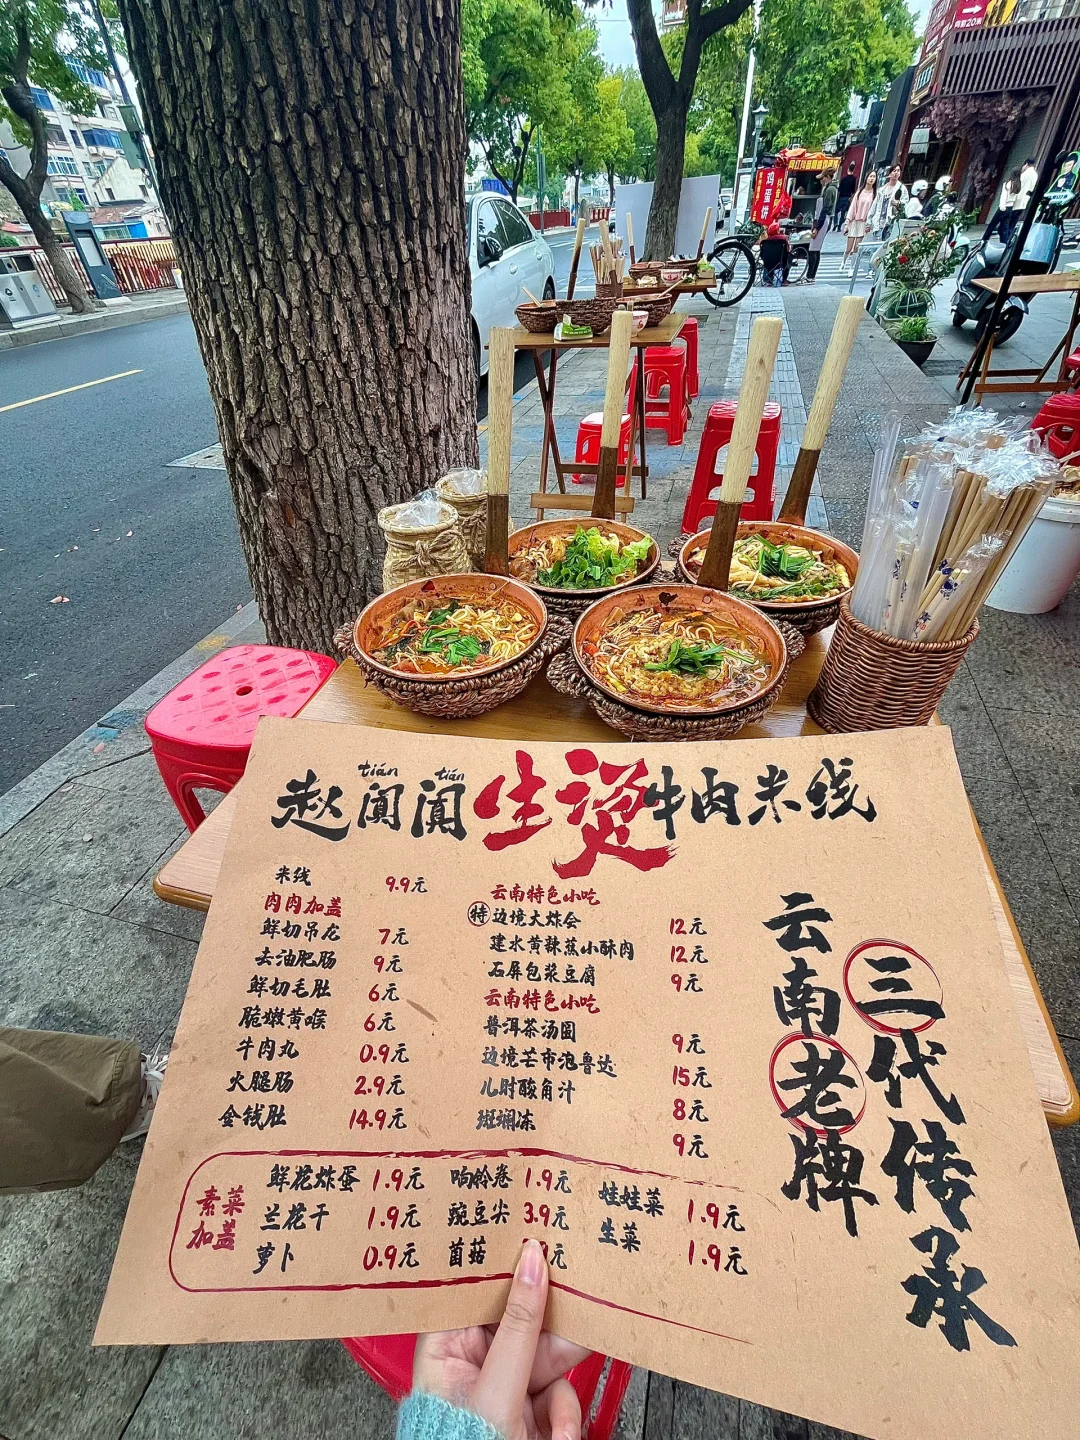 鸡蛋饼
tián tián
赵阗阗生烫牛肉米线
米线 9.9元
肉肉加盖
鲜切吊龙 7元
去油肥肠 9元
鲜切毛肚 6元
脆嫩黄喉 6元
牛肉丸 0.9元
火腿肠 2.9元
金钱肚 14.9元
云南特色小吃
特 边境大炸会 12元
建水黄辣蒸小酥肉 12元
石屏包浆豆腐 9元
云南特色小吃
普洱茶汤圆 9元
边境芒市泡鲁达 15元
儿时酸角汁 8元
斑斓冻 9元
云南老牌
三代传承
素菜加盖
鲜花炸蛋 1.9元
兰花干 1.9元
萝卜 0.9元
响铃卷 1.9元
豌豆尖 3.9元
菌菇 元
娃娃菜 1.9元
生菜 1.9元